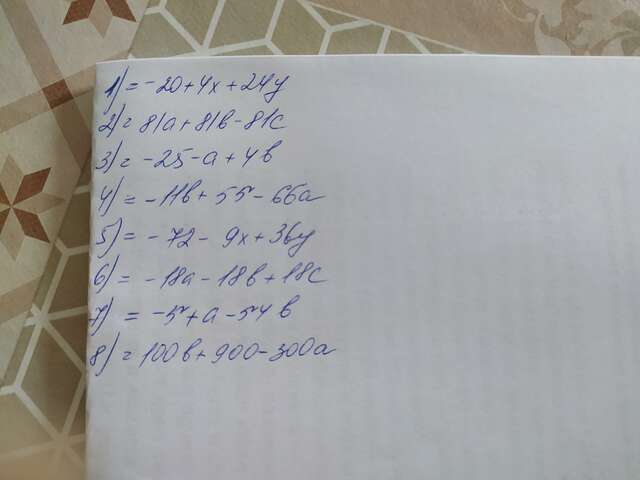 1) = -20+4x+24y
2) = 81a+81в-81c
3) = -25-a+4в
4) = -11в+55-66a
5) = -72-9x+36y
6) = -18a-18в+18c
7) = -5+a-54в
8) = 100в+900-300a